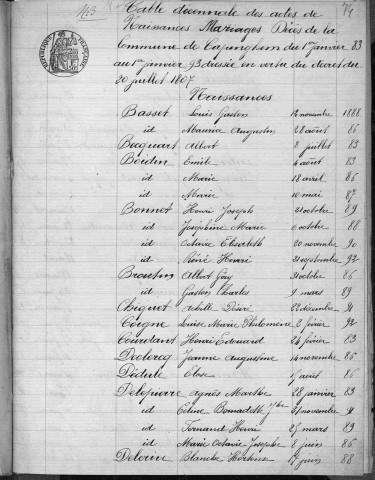 Table décennale des actes de
Naissances Mariages Décès de la
Commune de Capinghem du 1er janvier 83
au 1er janvier 93 dressée en vertu du décret du
20 juillet 1807
Naissances
Basset Louis Gaston 12 novembre 1888
id Maurice Augustin 28 août 86
Bocquart Albert 8 juillet 83
Bordin Emile 4 août 83
id Marie 18 avril 86
id Marie 10 mai 87
Bonnet Henri Joseph octobre 89
id Joséphine Marie 6 octobre 88
id Octavie Elisabeth 20 novembre 90
id Henri 21 septembre 92
Broutin Albert octobre 86
id Gaston Charles 9 mars 89
Achille Désiré 22 décembre 91
Louise Marie Philomène 2 février 92
Courdant Henri Edouard 26 février 83
Declercq Jeanne Augustine 14 novembre 86
Dédule Elise août 86
Delepierre Agnès Marthe 28 janvier 83
id Céline Bernadette novembre 91
id Fernand Henri 25 mars 89
id Marie Octavie Josèphe 8 juin 86
Blanche Hortense juin 88